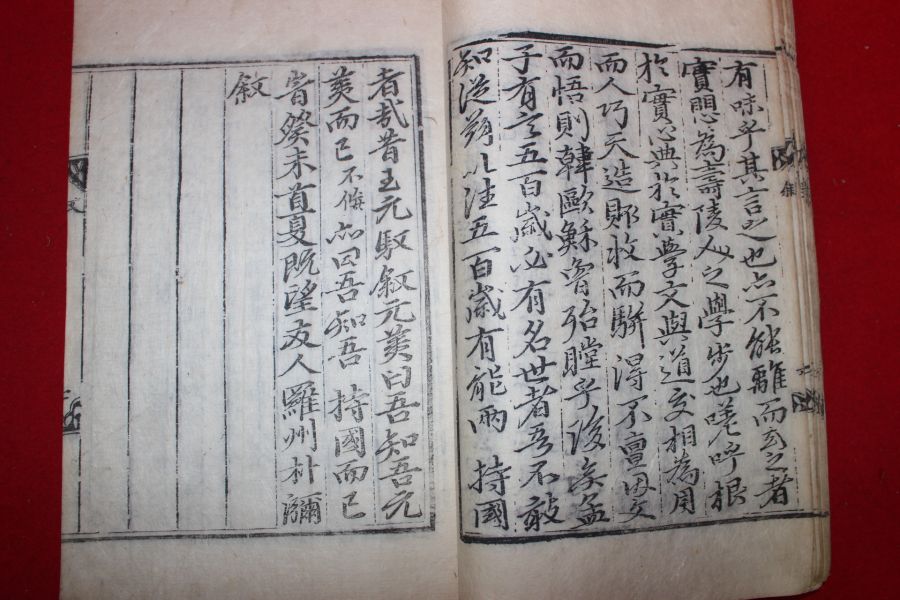 有味乎其言之也亦不能離而玄之者
實思爲壽陵人之學步也嗟呼根
於實典於實學文與道交相爲用
而人巧天造郎收而騈得不亶因文
而悟則韓歐蘇魯殆瞠乎後矣孟
子有言五百歲必有名世者吾不敢
知從玆以往五百歲有能兩 持國
者哉昔王元馭叙元美曰吾知吾元
美而已不佞亦曰吾知吾 持國而已
昔癸未首夏旣望友人羅州朴瀰
敘